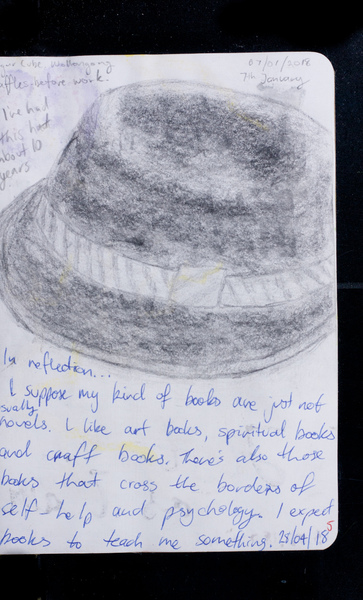 07/01/2018
7th January
before work
I've had
this hat
about 10
years
In reflection...
I suppose my kind of books are just not
usually
novels. I like art books, spiritual books
and craft books. There's also those
books that cross the borders of
self-help and psychology. I expect
books to teach me something. 28/04/18
5